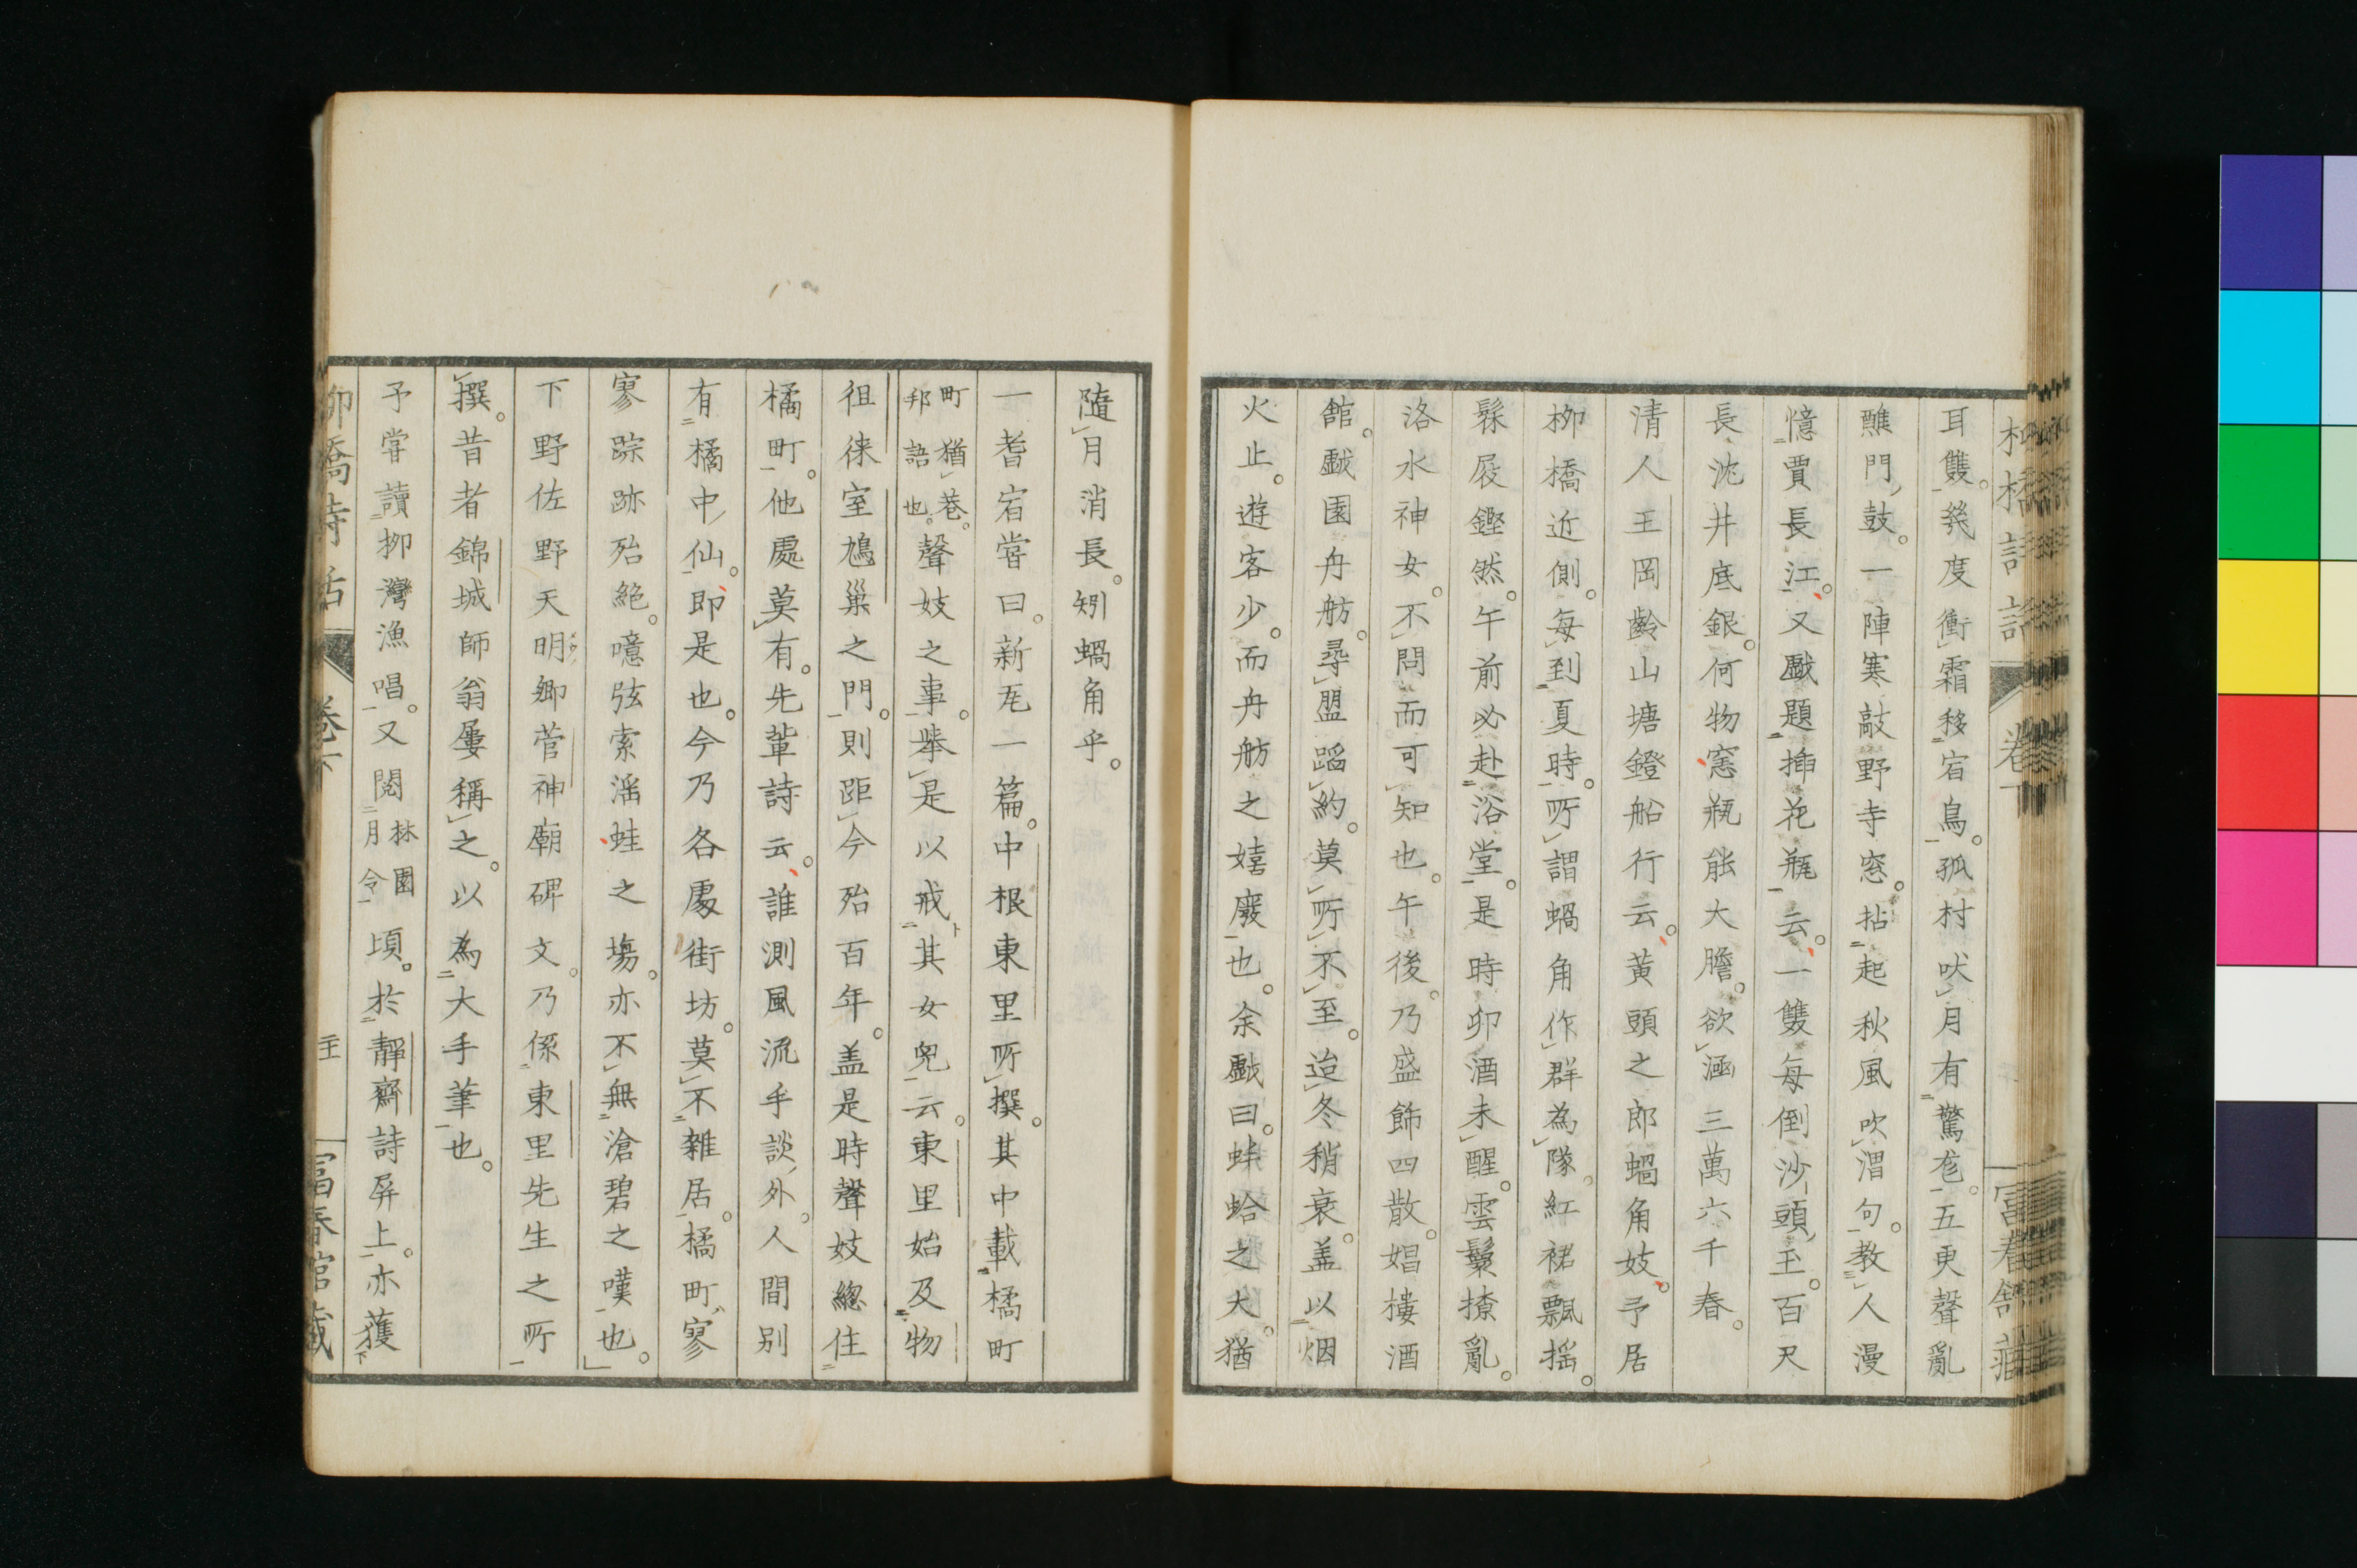 耳雙。幾度衝霜移宿鳥。孤村吠月有驚尨。五更聲亂
譙門鼓。一陣寒敲野寺窓。拈起秋風吹渭句。教人漫
憶賈長江。又戲題揷花瓶云。一雙每倒沙頭玉。百尺
長沈井底銀。何物窓瓶能大膽。欲涵三萬六千春。
清人王岡齡山塘鐙船行云。黃頭之郎蝸角妓。予居
栁橋近側。每到夏時。所謂蝸角作群為隊。紅裙飄搖。
髹屐鏗然。午前必赴浴堂。是時卯酒未醒。雲鬟撩亂。
洛水神女。不問而可知也。午後。乃盛飾四散。娼樓酒
館。戲園舟舫。尋盟蹈約。莫所不至。迨冬稍衰。盖以烟
火止。遊客少。而舟舫之嬉廢也。余戲曰。蚌蛤之大。猶
隨月消長。矧蝸角乎。
一耆宿嘗曰。新瓦一篇。中根東里所撰。其中載橘町
町猶巷。
邦語也。
聲妓之事。擧是以戒其女兒云。東里始及物
徂徠室鳩巢之門。則距今殆百年。盖是時聲妓緫住
橘町。他處莫有。先輩詩云。誰測風流手談外。人間別
有橘中仙。即是也。今乃各處街坊。莫不雜居。橘町寥
寥踪跡殆絕。噫弦索滛蛙之塲。亦不無滄碧之嘆也。
下野佐野天明鄉菅神廟碑文。乃係東里先生之所
撰。昔者錦城師翁屢稱之。以為大手筆也。
予甞讀栁灣漁唱。又閱
林園
月令
頃。於靜齋詩屏上。亦獲
栁橋詩話
卷下
富春館藏